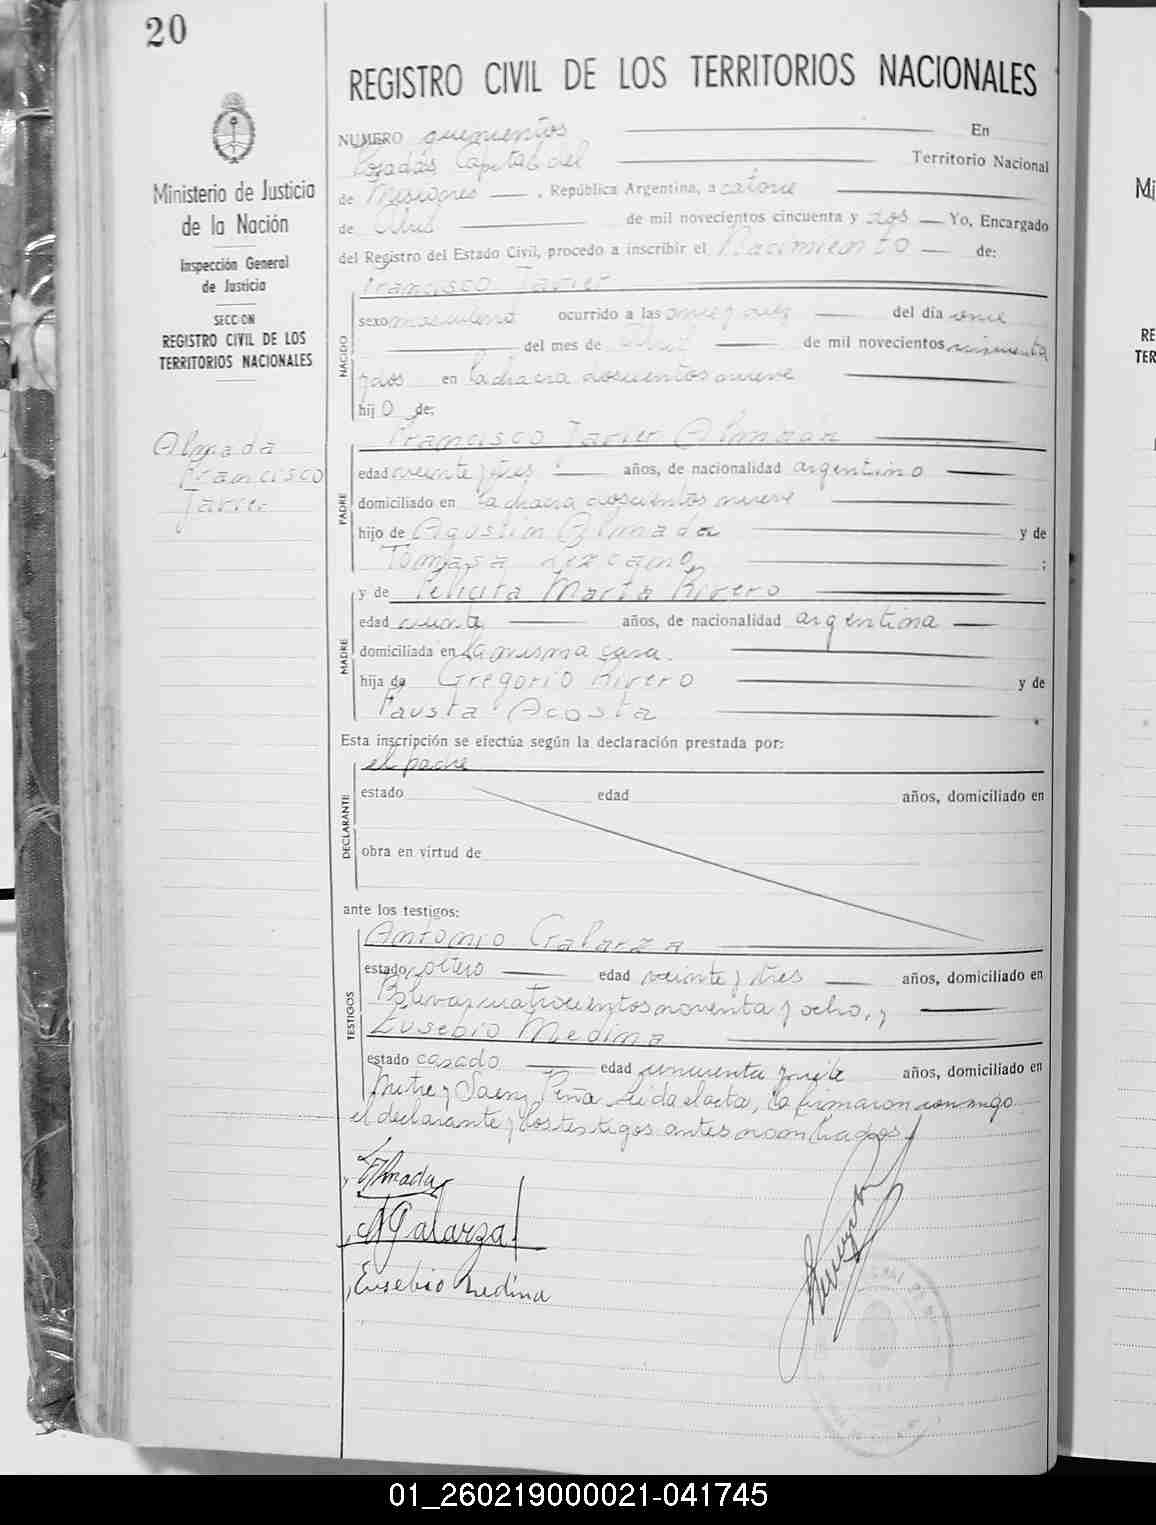 20
Ministerio de Justicia
de la Nación
Inspección General
de Justicia
SECCION
REGISTRO CIVIL DE LOS
TERRITORIOS NACIONALES
Almada
Francisco
Javier
REGISTRO CIVIL DE LOS TERRITORIOS NACIONALES
NUMERO quinientos En
Posadas Capital del Territorio Nacional
de Misiones , República Argentina, a catorce
de Abril de mil novecientos cincuenta y dos Yo, Encargado
del Registro del Estado Civil, procedo a inscribir el Nacimiento de:
NACIDO
Francisco Javier
sexo masculino ocurrido a las once y diez del día once
del mes de Abril de mil novecientos cincuenta
y dos en la chacra doscientos nueve
hijo de:
PADRE
Francisco Javier Almada
edad veinte y tres años, de nacionalidad argentino
domiciliado en la chacra doscientos nueve
hijo de Agustin Almada y de
Tomasa Lezcano ;
MADRE
y de Felicita Marta Rivero
edad veinte años, de nacionalidad argentina
domiciliada en la misma casa.
hija de Gregorio Rivero y de
Fausta Acosta .
Esta inscripción se efectúa según la declaración prestada por:
DECLARANTE
el padre
estado edad años, domiciliado en
obra en virtud de
ante los testigos:
TESTIGOS
Antonio Galarza
estado soltero edad veinte y tres años, domiciliado en
Bolivar cuatrocientos noventa y ocho, y
Eusebio Medina
estado casado edad cincuenta y siete años, domiciliado en
Mitre y Saenz Peña. Leida el acta, la firmaron conmigo
el declarante y los testigos antes nombrados.
Almada
Galarza
Eusebio Medina
Mi
RE
TER
01_260219000021-041745